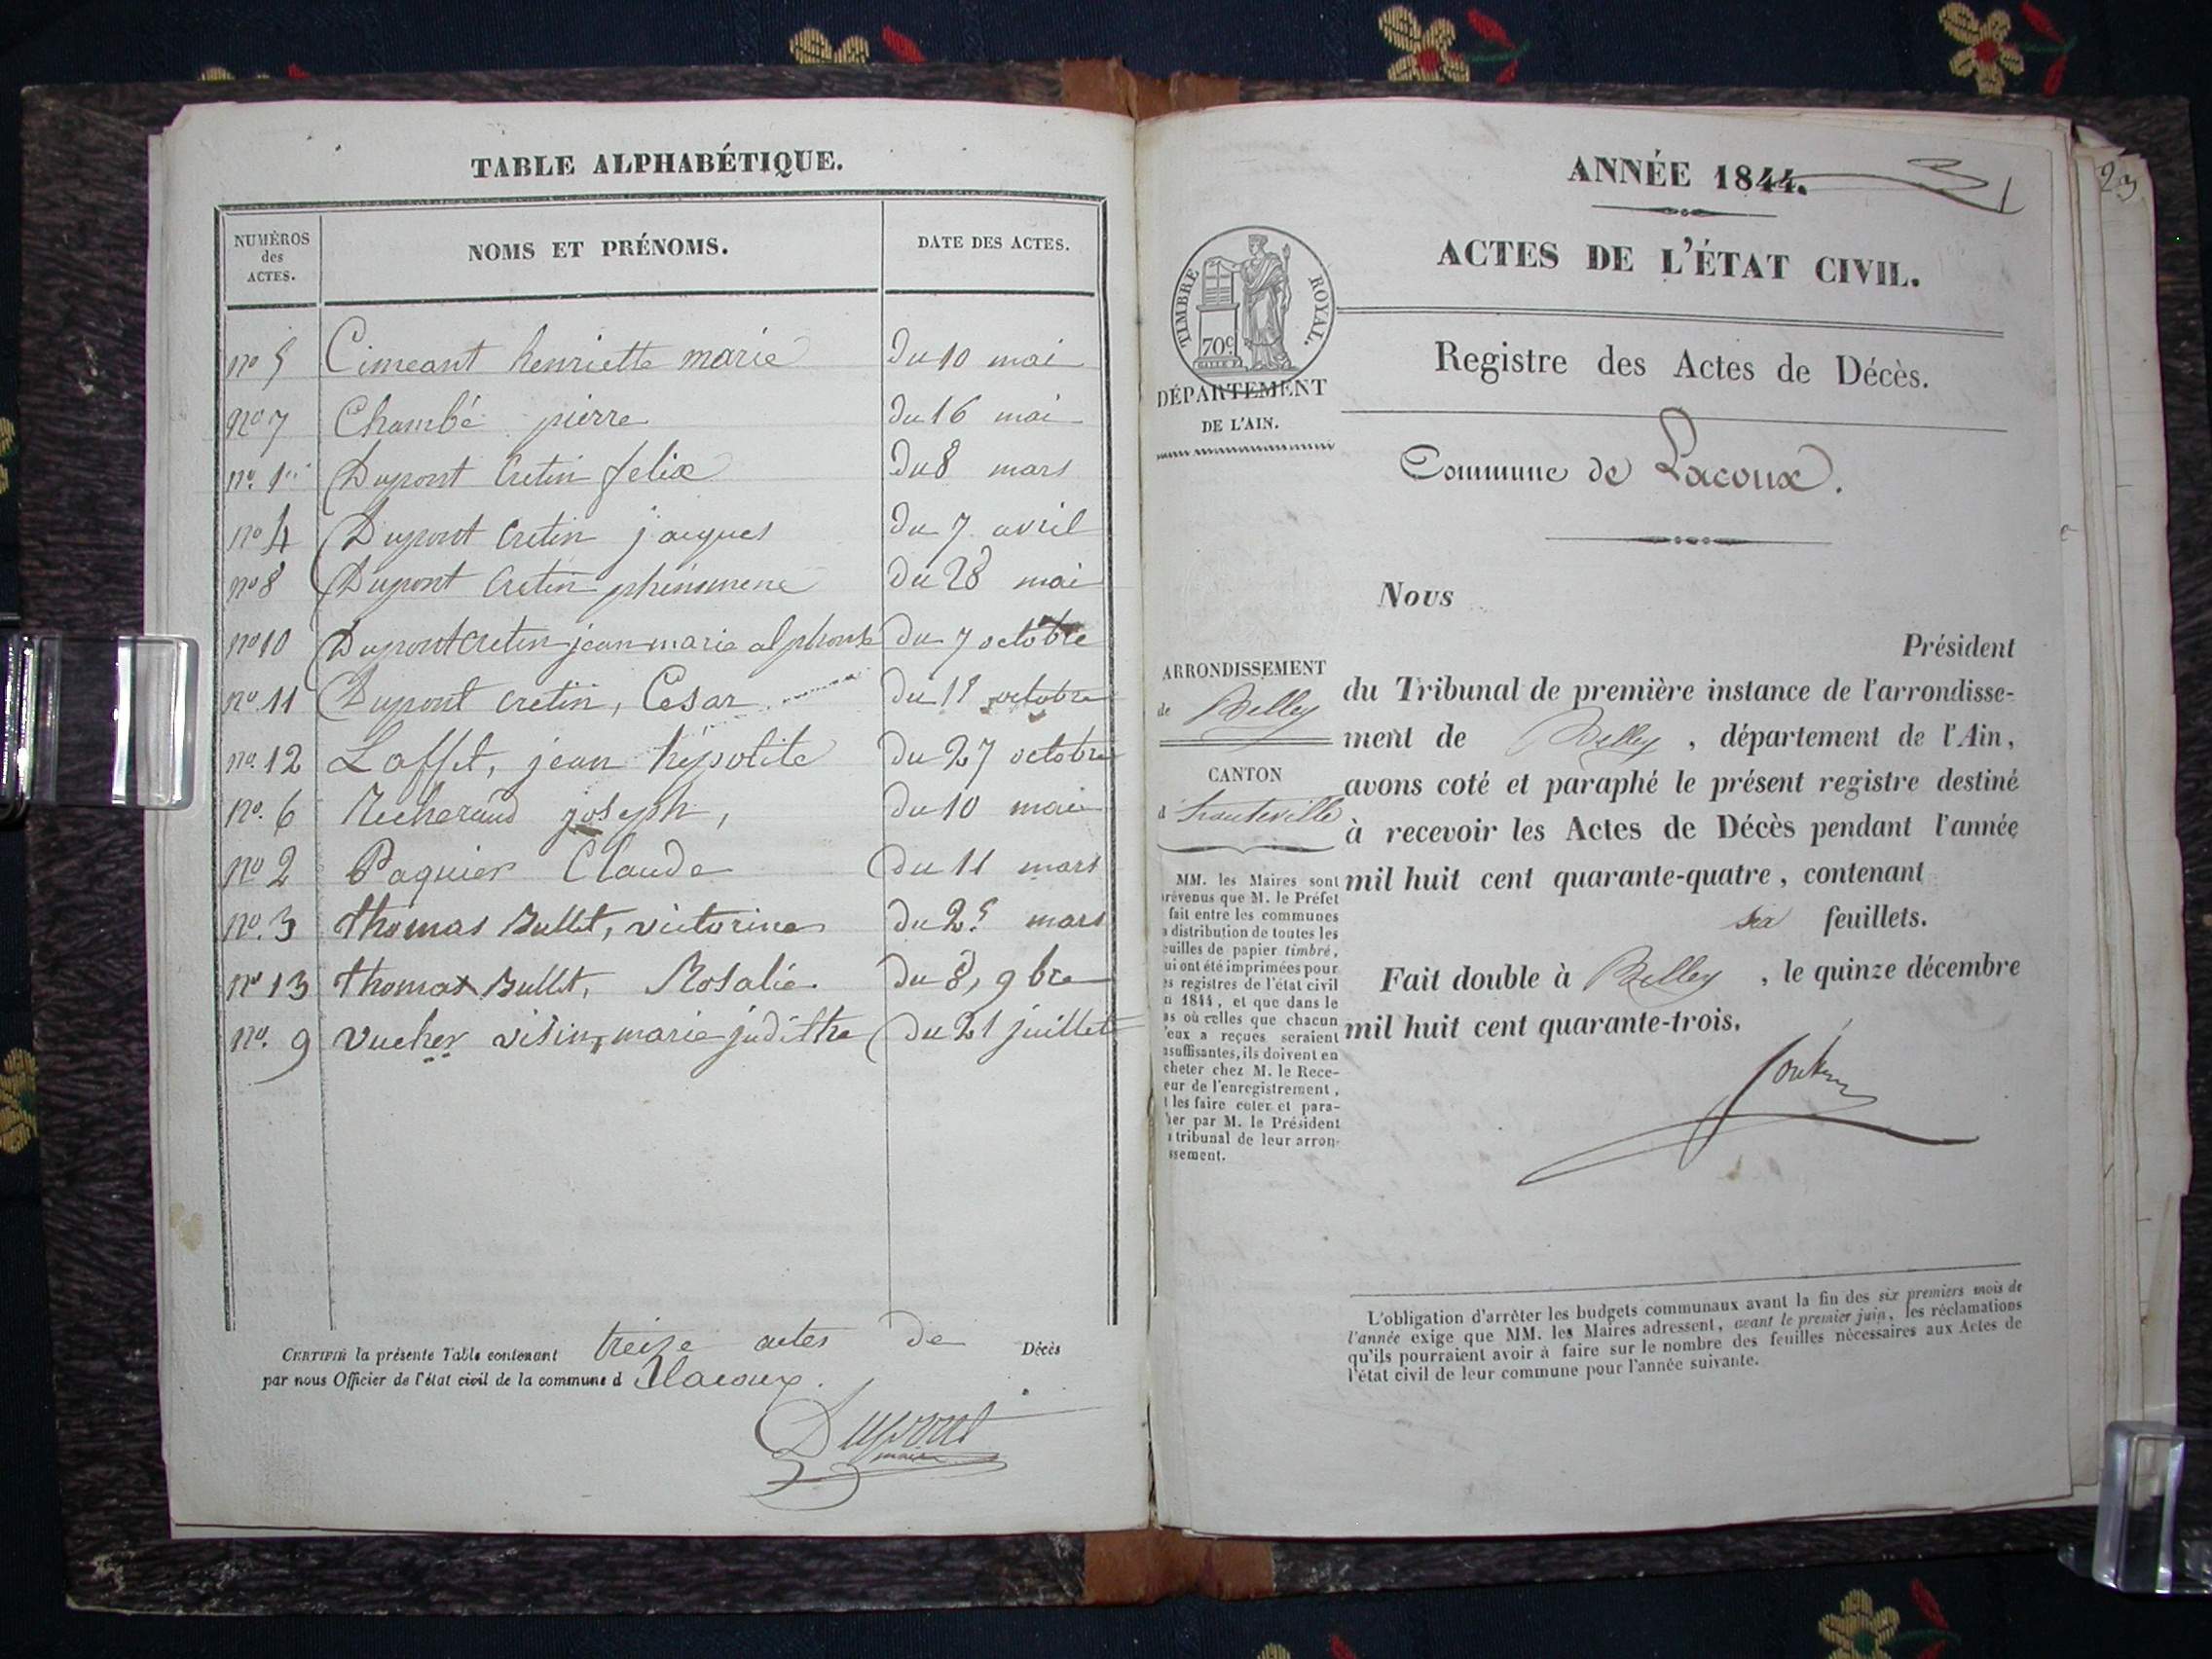 TABLE ALPHABÉTIQUE.
NUMÉROS des ACTES. NOMS ET PRÉNOMS. DATE DES ACTES.
no 5 Cimeant henriette marie du 10 mai
no 7 Chambé pierre du 16 mai
no. 1er Dupont Cretin felix du 8 mars
no 4 Dupont Cretin jacques du 7 avril
no 8 Dupont Cretin phinomene du 28 mai
no 10 Dupont cretin jean marie alphonse du 7 octobre
no. 11 Dupont cretin, Cesar du octobre
no. 12 Laffet, jean hipolite du 27 octobre
no. 6 joseph, du 10 mai
no 2 Paquier Claude du 11 mars
no. 3 thomas Bullet, victorine du 25 mars
no 13 thomas Bullet, Rosalie. du 8, 9bre
no. 9 vucher visin, marie judithe du 21 juillet
CERTIFIÉ la présente Table contenant treize actes de Décès
par nous Officier de l'état civil de la commune d Lacoux.
Dupont
maire
ANNÉE 1844.
ACTES DE L'ÉTAT CIVIL.
TIMBRE ROYAL.
70c
DÉPARTEMENT
DE L'AIN.
Registre des Actes de Décès.
Commune de Lacoux.
Nous
Président
du Tribunal de première instance de l'arrondisse-
ment de Belley, département de l'Ain,
avons coté et paraphé le présent registre destiné
à recevoir les Actes de Décès pendant l'année
mil huit cent quarante-quatre, contenant
six feuillets.
Fait double à Belley, le quinze décembre
mil huit cent quarante-trois.
ARRONDISSEMENT
de Belley
CANTON
d'hauteville
MM. les Maires sont
révenus que M. le Préfet
fait entre les communes
a distribution de toutes les
euilles de papier timbré,
ui ont été imprimées pour
es registres de l'état civil
n 1844, et que dans le
as où celles que chacun
'eux a reçues seraient
nsuffisantes, ils doivent en
cheter chez M. le Rece-
eur de l'enregistrement,
t les faire coter et para-
her par M. le Président
u tribunal de leur arron-
ssement.
L'obligation d'arrêter les budgets communaux avant la fin des six premiers mois de
l'année exige que MM. les Maires adressent, avant le premier juin, les réclamations
qu'ils pourraient avoir à faire sur le nombre des feuilles nécessaires aux Actes de
l'état civil de leur commune pour l'année suivante.
23